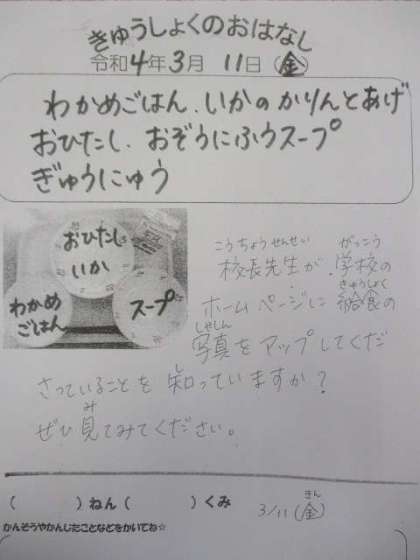 きゅうしょくのおはなし
令和4年3月 11日(金)
わかめごはん、いかのかりんとあげ
おひたし、おぞうにふうスープ
ぎゅうにゅう
おひたし
いか
わかめ
ごはん
スープ
こうちょうせんせい がっこう
校長先生が、学校の
きゅうしょく
ホームページに給食の
しゃしん
写真をアップしてくだ
し
さっていることを知っていますか?
み
ぜひ見てみてください。
きん
( )ねん( )くみ 3/11(金)
かんそうやかんじたことなどをかいてね☆